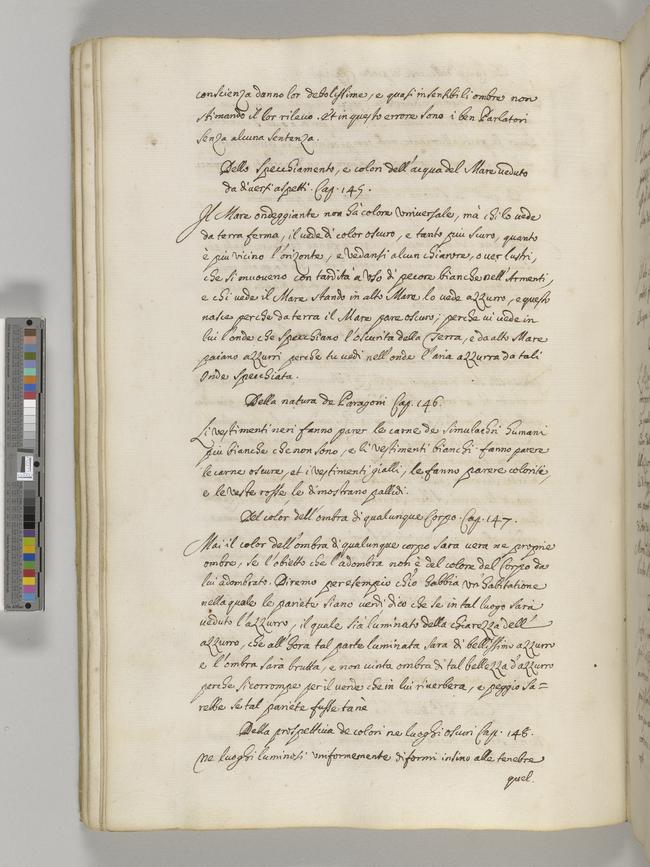 conscienza danno lor debolissime, e quasi insensibili ombre non
stimando il lor rilevo. Et in questo errore sono i ben Parlatori
senza alcuna sentenza.
Dello specchiamento, e colori dell'acqua del Mare veduto
da diversi aspetti. Cap. 145.
Il Mare ondeggiante non hà colore universale, mà chi lo vede
da terra ferma, il vede di color oscuro, e tanto più scuro, quanto
è più vicino l'orizonte, e vedansi alcun chiarore, over lustri,
che si muoveno con tardità a uso di pecore bianche nell'Armenti,
e chi vede il Mare stando in alto Mare lo vede azzurro, e questo
nasce perche da terra il Mare pare oscuro; perche vi vede in
lui l'onde che specchiano l'oscurità della Terra, e da alto Mare
paiano azzurri perche tu vedi nell'onde l'aria azzurra da tali
onde specchiata.
Della natura de Paragoni Cap. 146.
Li vestimenti neri fanno parer le carne de simulachri humani
più bianche che non sono, e li vestimenti bianchi fanno parere
le carne oscure, et i vestimenti gialli, le fanno parere colorite,
e le veste rosse le dimostrano pallidi.
Del color dell'ombra di qualunque Corpo. Cap. 147.
Mai il color dell'ombra di qualunque corpo sara vera ne proprie
ombre, se l'obietto che l'adombra non è del colore del Corpo da
lui adombrato. Diremo per esempio ch'io habbia un habitatione
nella quale le pariete siano verdi dico che se in tal luogo sarà
veduto l'azzurro, il quale sia luminato della chiarezza dell'
azzurro, che all'hora tal parte luminata sara di bellissimo azzurro
e l'ombra sarà brutta, e non vinta ombra di tal bellezza d'azzurro
perche si corrompe per il verde che in lui riverbera, e peggio sa=
rebbe se tal pariete fusse tanè
Della prospettiva de colori ne luoghi oscuri Cap. 148.
Ne luoghi luminosi uniformemente difformi insino alle tenebre
quel.